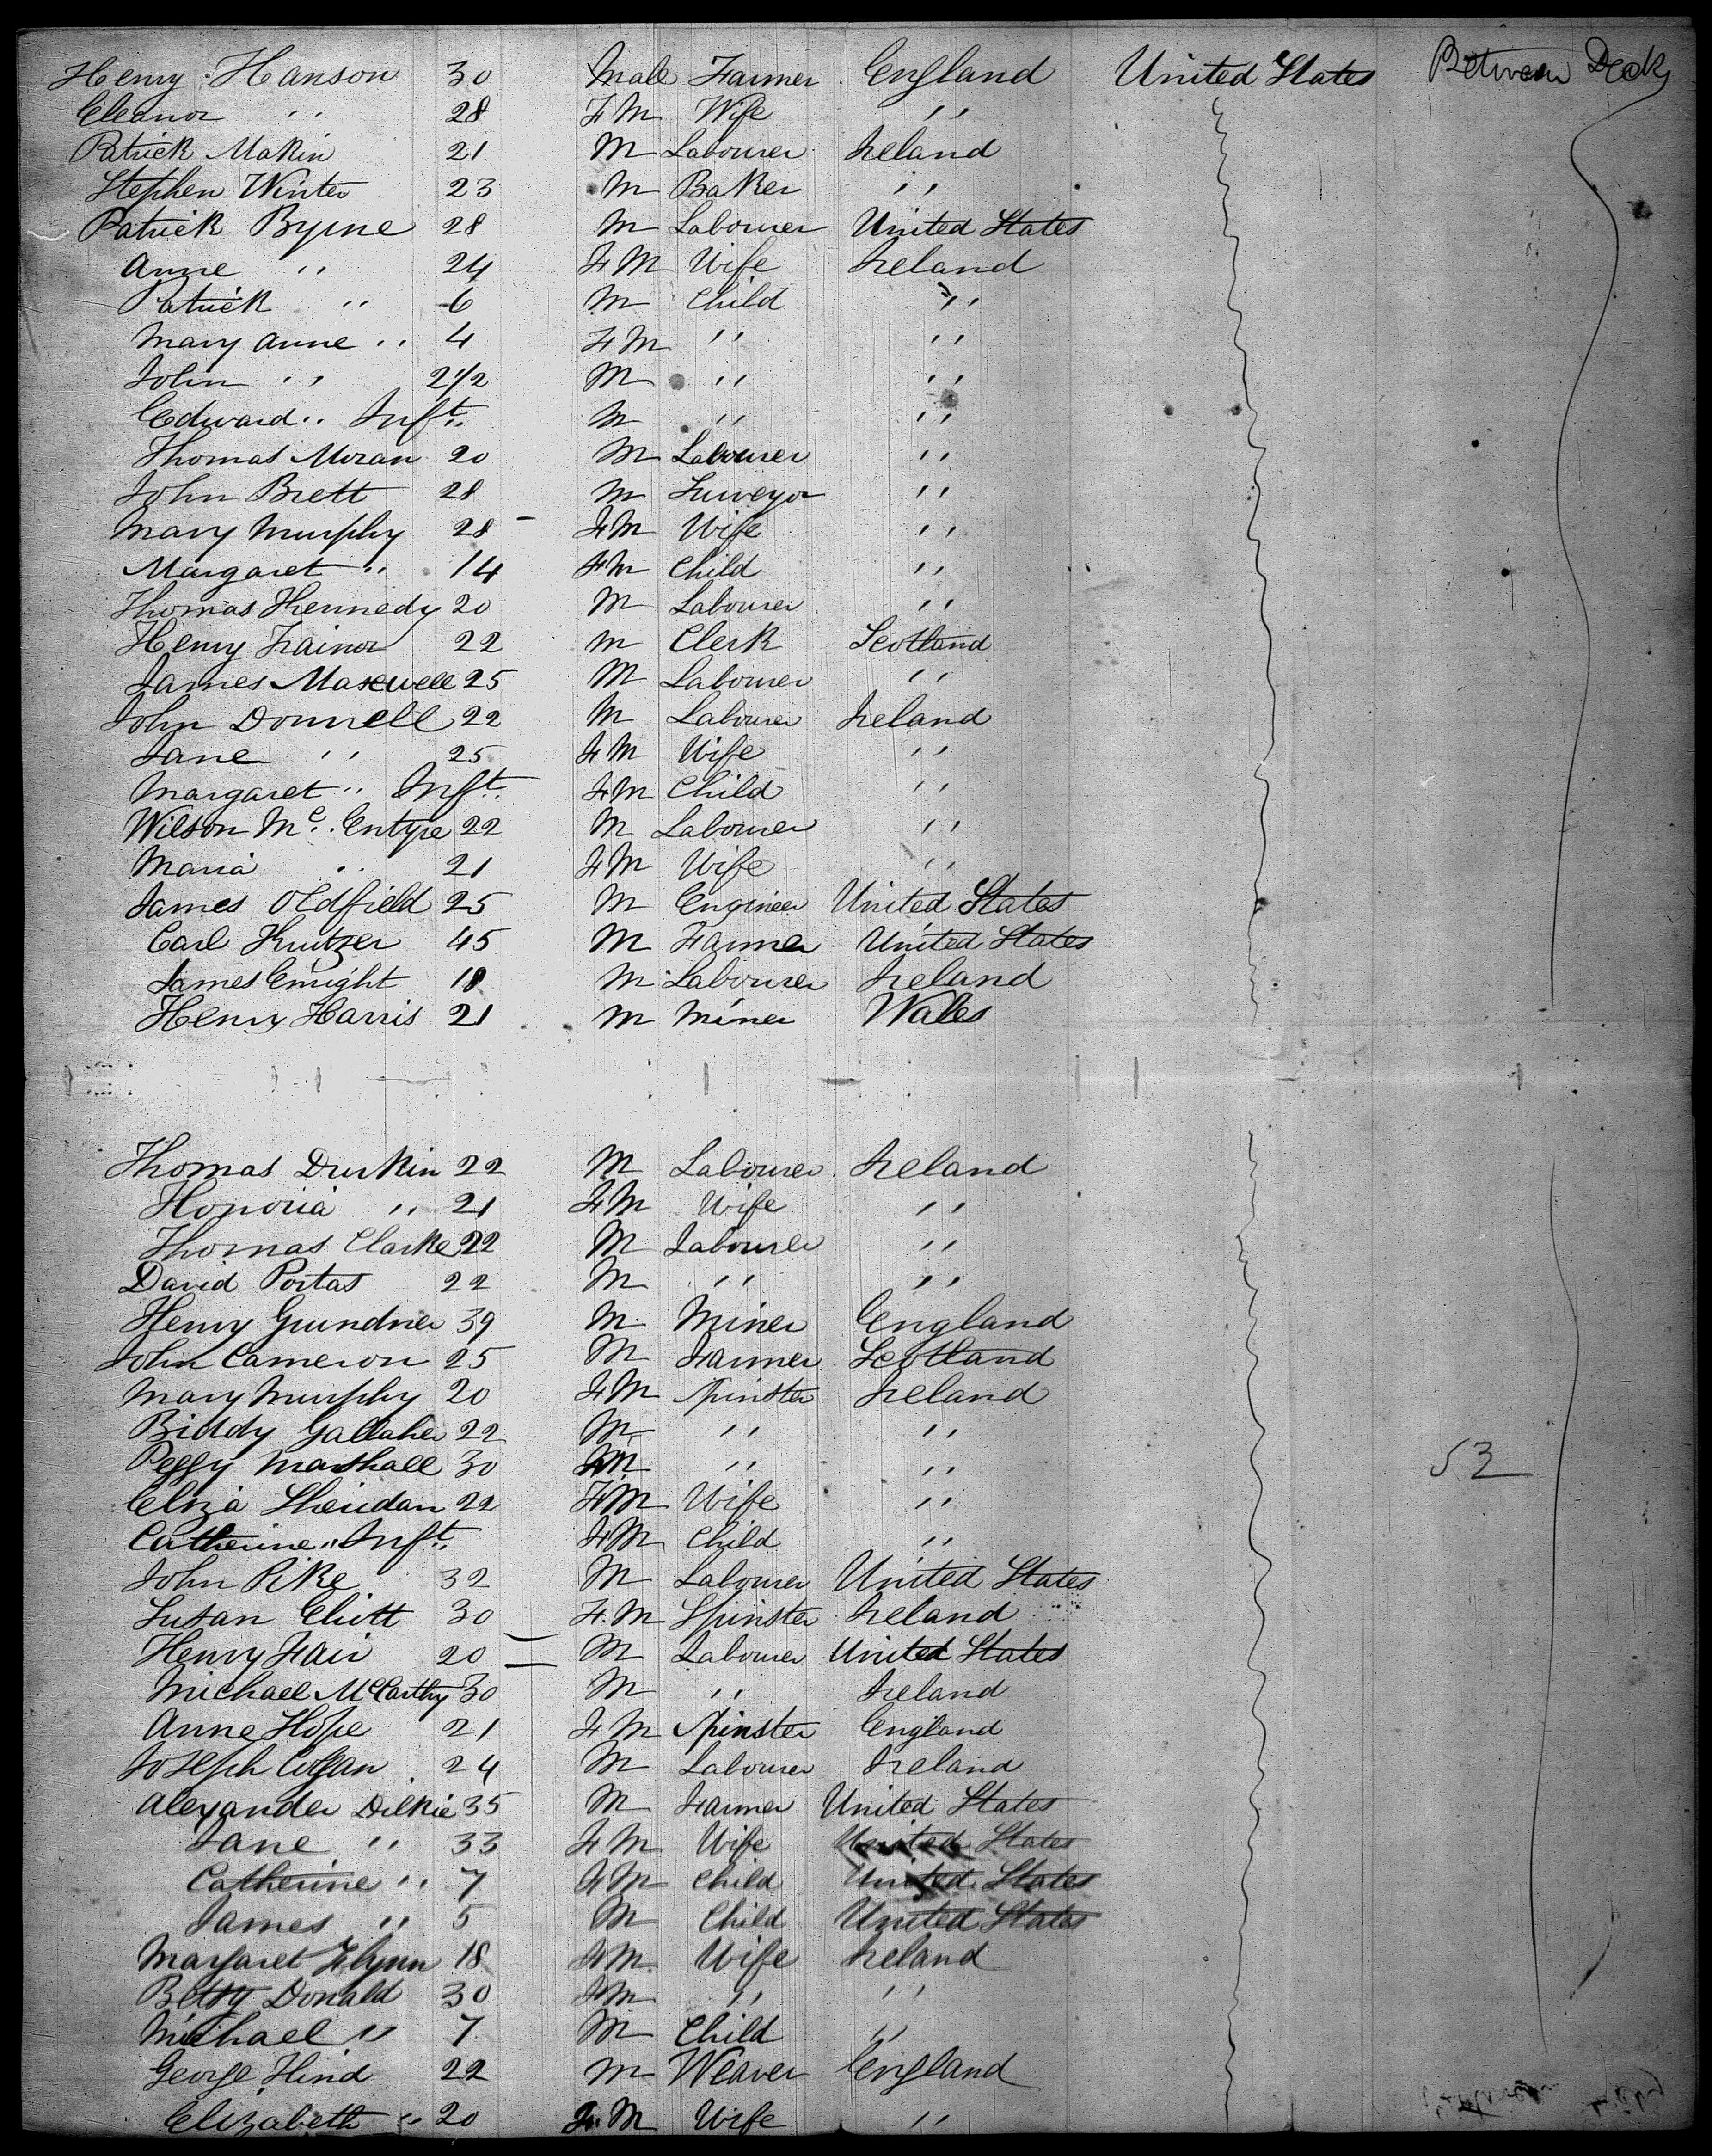 Henry Hanson 30 Male Farmer England United States Between Decks
Eleanor " 28 FM Wife "
Patrick Makin 21 M Labourer Ireland
Stephen Winter 23 M Baker "
Patrick Byrne 28 M Labourer United States
Anne " 24 FM Wife Ireland
Patrick " 6 M Child "
Mary Anne " 4 FM " "
John " 2 1/2 M " "
Edward " Inft. M " "
Thomas Moran 20 M Labourer "
John Brett 28 M Surveyor "
Mary Murphy 28 FM Wife "
Margaret " 14 FM Child "
Thomas Kennedy 20 M Labourer "
Henry Trainor 22 M Clerk Scotland
James Maxwell 25 M Labourer "
John Donnell 22 M Labourer Ireland
Jane " 25 FM Wife "
Margaret " Inft. FM Child "
Wilson Mc. Entyre 22 M Labourer "
Maria " 21 FM Wife "
James Oldfield 25 M Engineer United States
Carl Krutzer 45 M Farmer United States
James Enright 18 M Labourer Ireland
Henry Harris 21 M Miner Wales
Thomas Durkin 22 M Labourer Ireland
Honoria " 21 FM Wife "
Thomas Clarke 22 M Labourer "
David Portas 22 M " "
Henry Grundner 39 M Miner England
John Cameron 25 M Farmer Scotland
Mary Murphy 20 FM Spinster Ireland
Biddy Gallaher 22 M " "
Peggy Marshall 30 FM " "
Eliza Sheridan 22 FM Wife "
Catherine " Inft. FM Child "
John Pike 32 M Labourer United States
Susan Eliott 30 F.M Spinster Ireland
Henry Fair 20 M Labourer United States
Michael McCarthy 30 M " Ireland
Anne Hope 21 FM Spinster England
Joseph Cogan 24 M Labourer Ireland
Alexander Dilkie 35 M Farmer United States
Jane " 33 FM Wife United States
Catherine " 7 FM Child United States
James " 5 M Child United States
Margaret Flynn 18 FM Wife Ireland
Betty Donald 30 FM " "
Michael " 7 M Child "
George Hind 22 M Weaver England
Elizabeth " 20 F.M Wife "